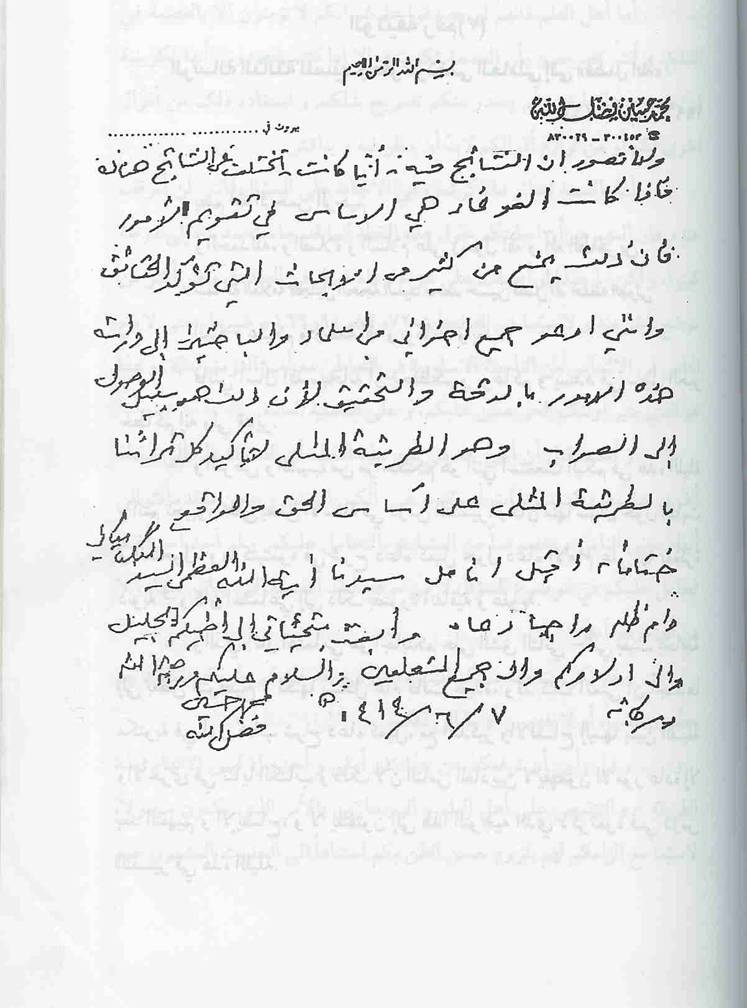 بسم الله الرحمن الرحيم
محمد حسين فضل الله
بيروت في
☎ ٣٠٠٤٥٢ - ٨٣٠٠٢٩
ولا تصور ان النتائج فيه ـ أيا كانت ـ تختلف عن النتائج هناك
فاذا كانت الغوغاء هي الاساس في تقويم الامور
فان ذلك يمنع من كثير من الابحاث التي تؤكد الحقائق
وانني ادعو جميع اخواني من العلماء والباحثين إلى دراسة
هذه الامور بالدقة والتحقيق لأن ذلك هو سبيل الوصول
إلى الصواب وهو الطريقة المثلى لتأكيد كل تراثنا
بالطريقة المثلى على أساس الحق والواقع
ختاماً أقبل انامل سيدنا آية الله العظمى السيد
دام ظله راجياً دعاءه وأبعث بتحياتي إلى الجليل
والى اولادكم والى جميع المتعلقين والسلام عليكم ورحمة الله
وبركاته ٧ / ٦ / ١٤١٤ هـ
محمد حسين
فضل الله